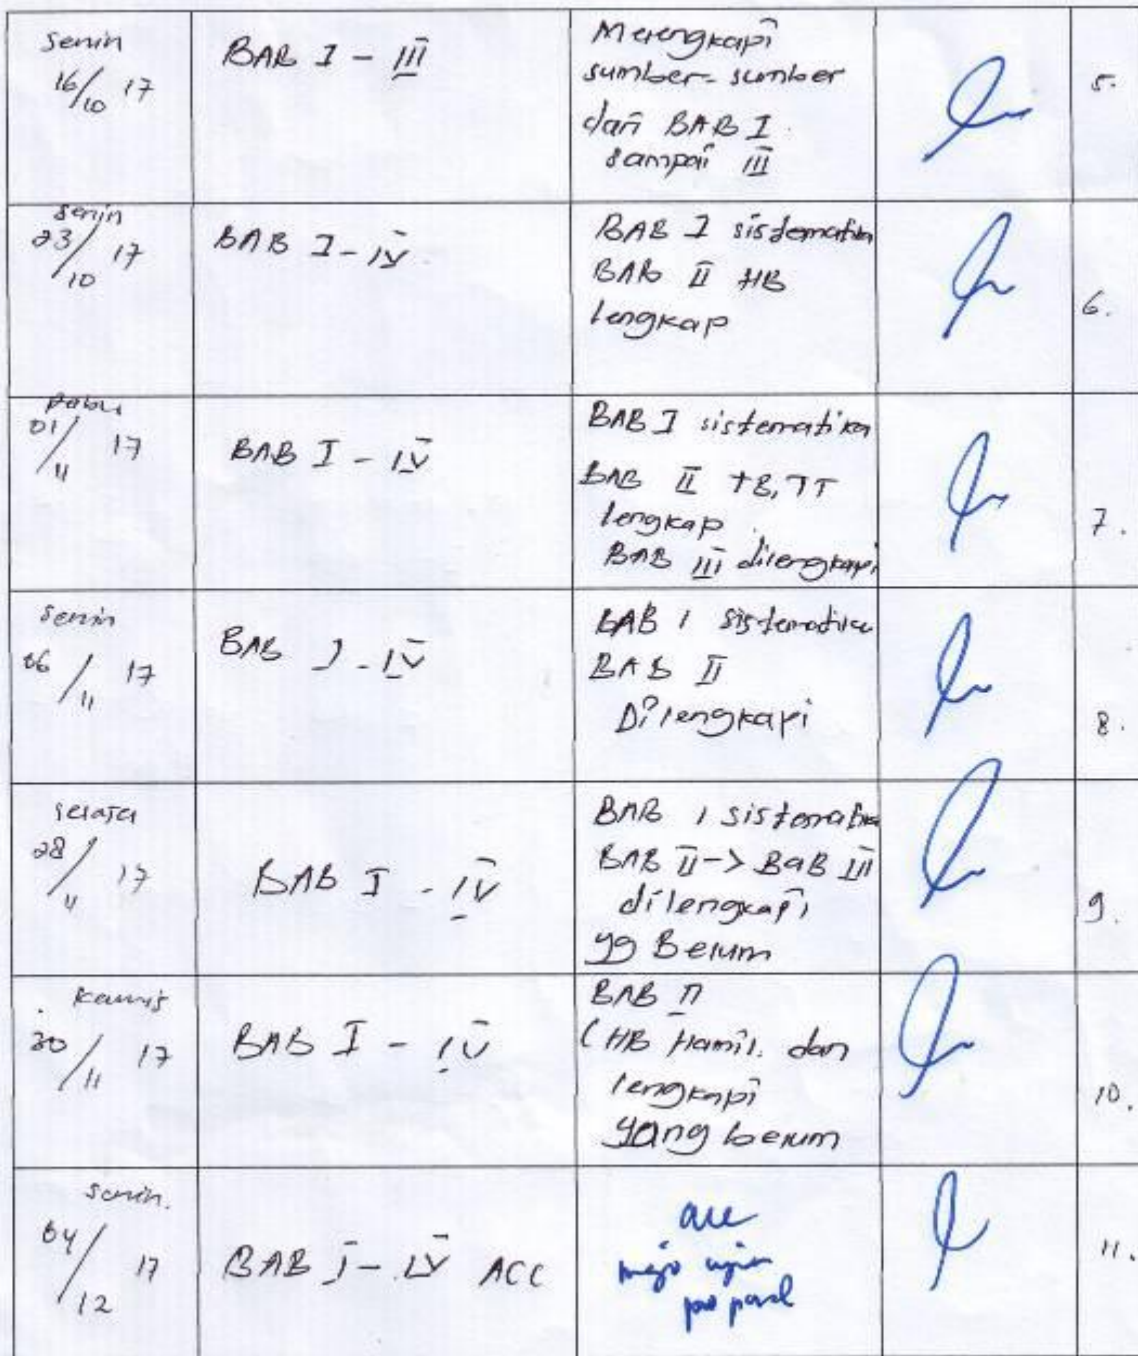 Senin
16/10 17
BAB I - III
Melengkapi
sumber-sumber
dari BAB I
sampai III
5.
Senin
23/10 17
BAB I - IV
BAB I sistematika
BAB II HB
lengkap
6.
Rabu
01/11 17
BAB I - IV
BAB I sistematika
BAB II TB, TT
lengkap
BAB III dilengkapi
7.
Senin
06/11 17
BAB I - IV
BAB I sistematika
BAB II
Dilengkapi
8.
Selasa
28/11 17
BAB I - IV
BAB I sistematika
BAB II -> BaB III
dilengkapi
yg Belum
9.
Kamis
30/11 17
BAB I - IV
BAB II
(HB Hamil. dan
lengkapi
yang belum
10.
Senin.
04/12 17
BAB I - IV ACC
acc
maju ujian
proposal
11.